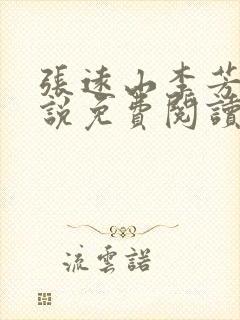 張遠山李芳
說免費閱讀
流雲諾